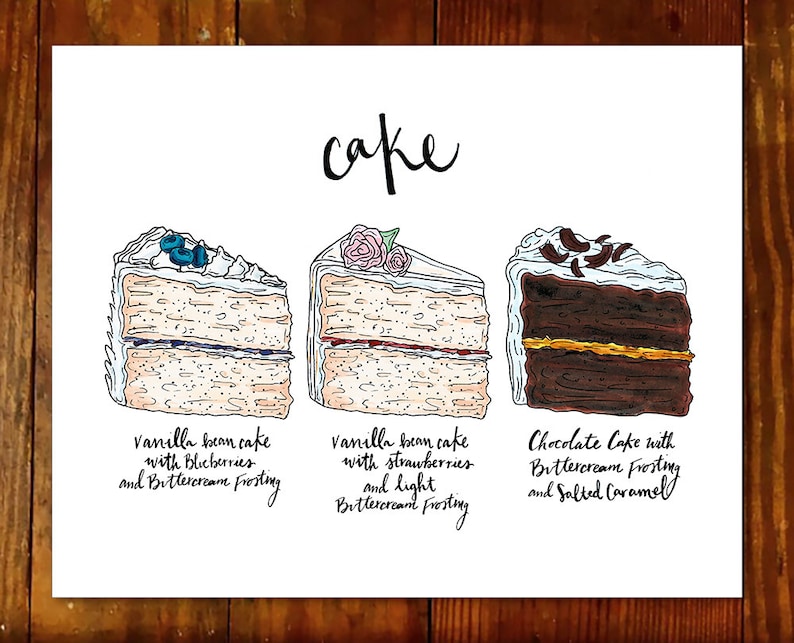 cake
vanilla bean cake
with Blueberries
and Buttercream Frosting
vanilla bean cake
with strawberries
and light
Buttercream Frosting
Chocolate Cake with
Buttercream Frosting
and Salted Caramel